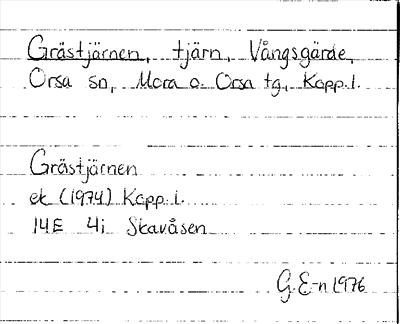 Grästjärnen, tjärn, Vångsgärde,
Orsa sn, Mora o. Orsa tg., Kopp. l.
Grästjärnen
ek (1974) Kopp. l.
14E 4i Skavåsen
G. E-n 1976